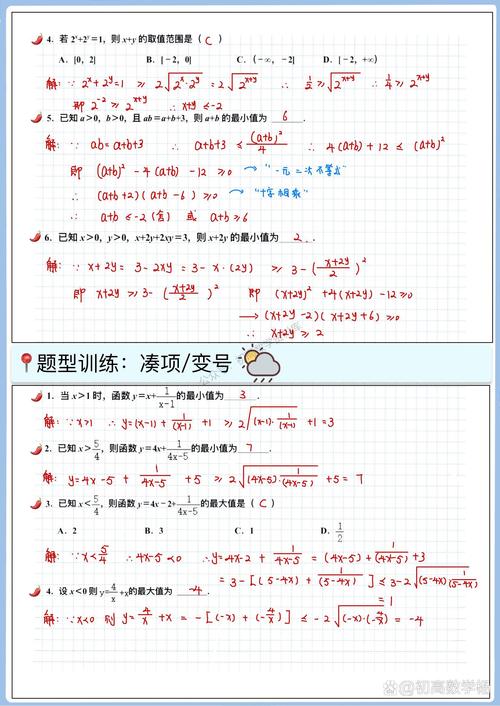 4. 若 2ˣ+2ʸ=1，则 x+y 的取值范围是（ C ）
A. [0, 2] B. [-2, 0] C. (-∞, -2] D. [-2, +∞)
解: ∵ 2ˣ+2ʸ=1 ≥ 2√(2ˣ·2ʸ) = 2√(2ˣ⁺ʸ) ∴ 1/2 ≥ √(2ˣ⁺ʸ) ∴ 1/4 ≥ 2ˣ⁺ʸ
即 2⁻² ≥ 2ˣ⁺ʸ ∴ x+y ≤ -2
5. 已知 a>0，b>0，且 ab=a+b+3，则 a+b 的最小值为 6 .
解: ∵ ab = a+b+3 ∴ a+b+3 ≤ (a+b)²/4 ∴ 4(a+b)+12 ≤ (a+b)²
即 (a+b)² -4(a+b) -12 ≥0 → "一元二次不等式"
∴ (a+b+2)(a+b-6) ≥0 → "十字相乘"
∴ a+b ≤ -2 (舍) 或 a+b ≥ 6
6. 已知 x>0，y>0，x+2y+2xy=3，则 x+2y 的最小值为 2 .
解: ∵ x+2y = 3-2xy = 3-x·(2y) ≥ 3-((x+2y)/2)²
即 x+2y ≥ 3-((x+2y)/2)² 即 (x+2y)² +4(x+2y)-12≥0
→ (x+2y-2)(x+2y+6)≥0
∴ x+2y ≥ 2
题型训练：凑项/变号
1. 当 x>1 时，函数 y=x+1/(x-1) 的最小值为 3 .
解: ∵x>1 ∴y=(x-1)+1/(x-1)+1 ≥ 2√((x-1)·1/(x-1)) +1 =3
2. 已知 x>5/4，则函数 y=4x+1/(4x-5) 的最小值为 7 .
解: y=4x-5 + 1/(4x-5) +5 ≥ 2√((4x-5)·1/(4x-5)) +5 = 7
3. 已知 x<5/4，则函数 y=4x-2+1/(4x-5) 的最大值是（ C ）
A. 2 B. 3 C. 1 D. 1/2
解: ∵x<5/4 ∴ 4x-5<0 ∴y=4x-2 + 1/(4x-5) = (4x-5)+1/(4x-5)+3
= 3-[(5-4x)+1/(5-4x)] ≤ 3-2√((5-4x)·1/(5-4x))
4. 设 x<0 则 y=4/x+x 的最大值为 -4 .
解: ∵x<0 则 y=4/x+x = -[(-x)+(-4/x)] ≤ -2√((-x)·(-4/x)) = -4
@初高数学帮